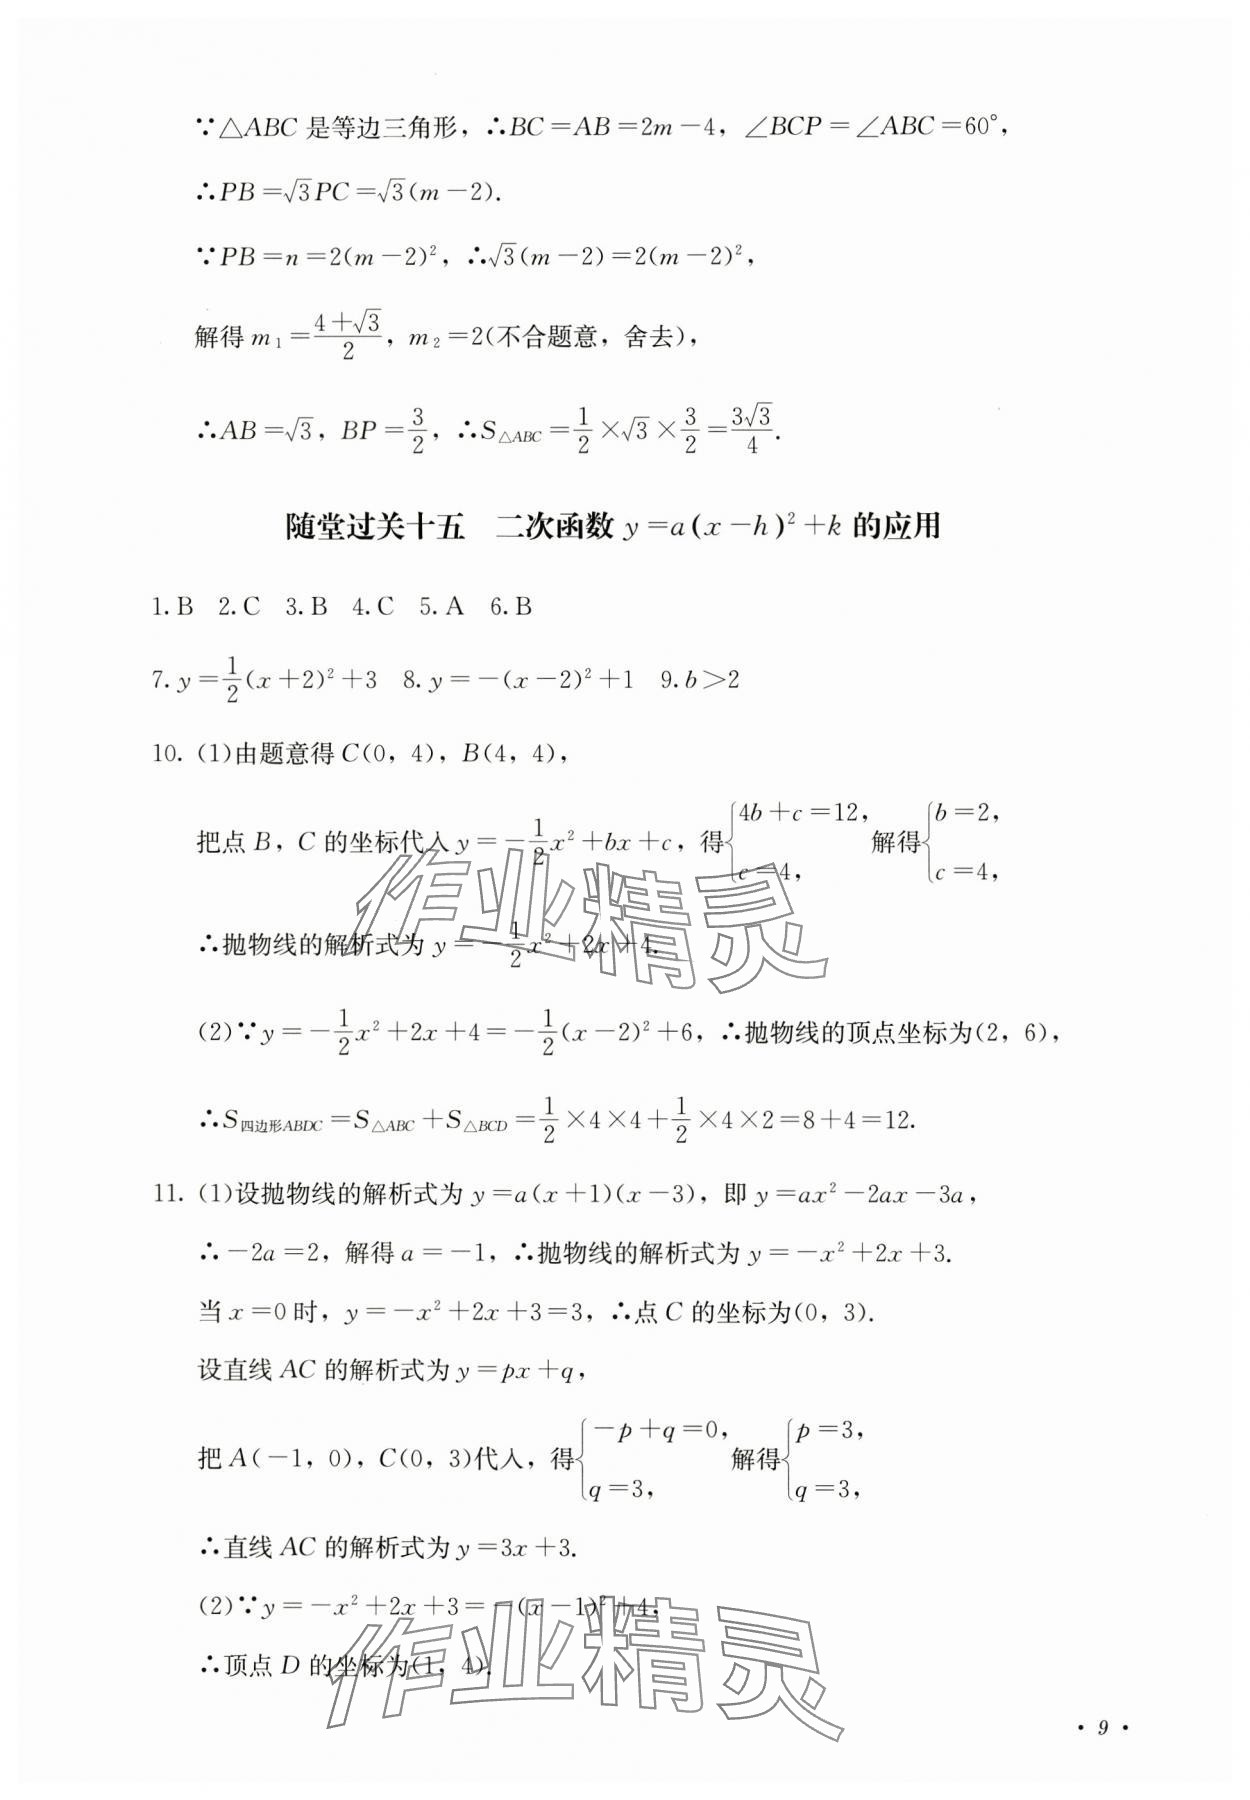 ∵△ABC 是等边三角形，∴BC=AB=2m-4，∠BCP=∠ABC=60°，
∴PB=√3PC=√3(m-2).
∵PB=n=2(m-2)²，∴√3(m-2)=2(m-2)²，
解得 m₁=(4+√3)/2，m₂=2(不合题意，舍去)，
∴AB=√3，BP=3/2，∴S△ABC=1/2×√3×3/2=3√3/4.
随堂过关十五 二次函数 y=a(x-h)²+k 的应用
1.B 2.C 3.B 4.C 5.A 6.B
7.y=1/2(x+2)²+3 8.y=-(x-2)²+1 9.b>2
10.(1)由题意得 C(0，4)，B(4，4)，
把点 B，C 的坐标代入 y=-1/2x²+bx+c，得{4b+c=12，c=4，解得{b=2，c=4，
∴抛物线的解析式为 y=-1/2x²+2x+4.
(2)∵y=-1/2x²+2x+4=-1/2(x-2)²+6，∴抛物线的顶点坐标为(2，6)，
∴S四边形ABDC=S△ABC+S△BCD=1/2×4×4+1/2×4×2=8+4=12.
11.(1)设抛物线的解析式为 y=a(x+1)(x-3)，即 y=ax²-2ax-3a，
∴-2a=2，解得 a=-1，∴抛物线的解析式为 y=-x²+2x+3.
当 x=0 时，y=-x²+2x+3=3，∴点 C 的坐标为(0，3).
设直线 AC 的解析式为 y=px+q，
把 A(-1，0)，C(0，3)代入，得{-p+q=0，q=3，解得{p=3，q=3，
∴直线 AC 的解析式为 y=3x+3.
(2)∵y=-x²+2x+3=-(x-1)²+4，
∴顶点 D 的坐标为(1，4).
· 9 ·
作业精灵
作业精灵